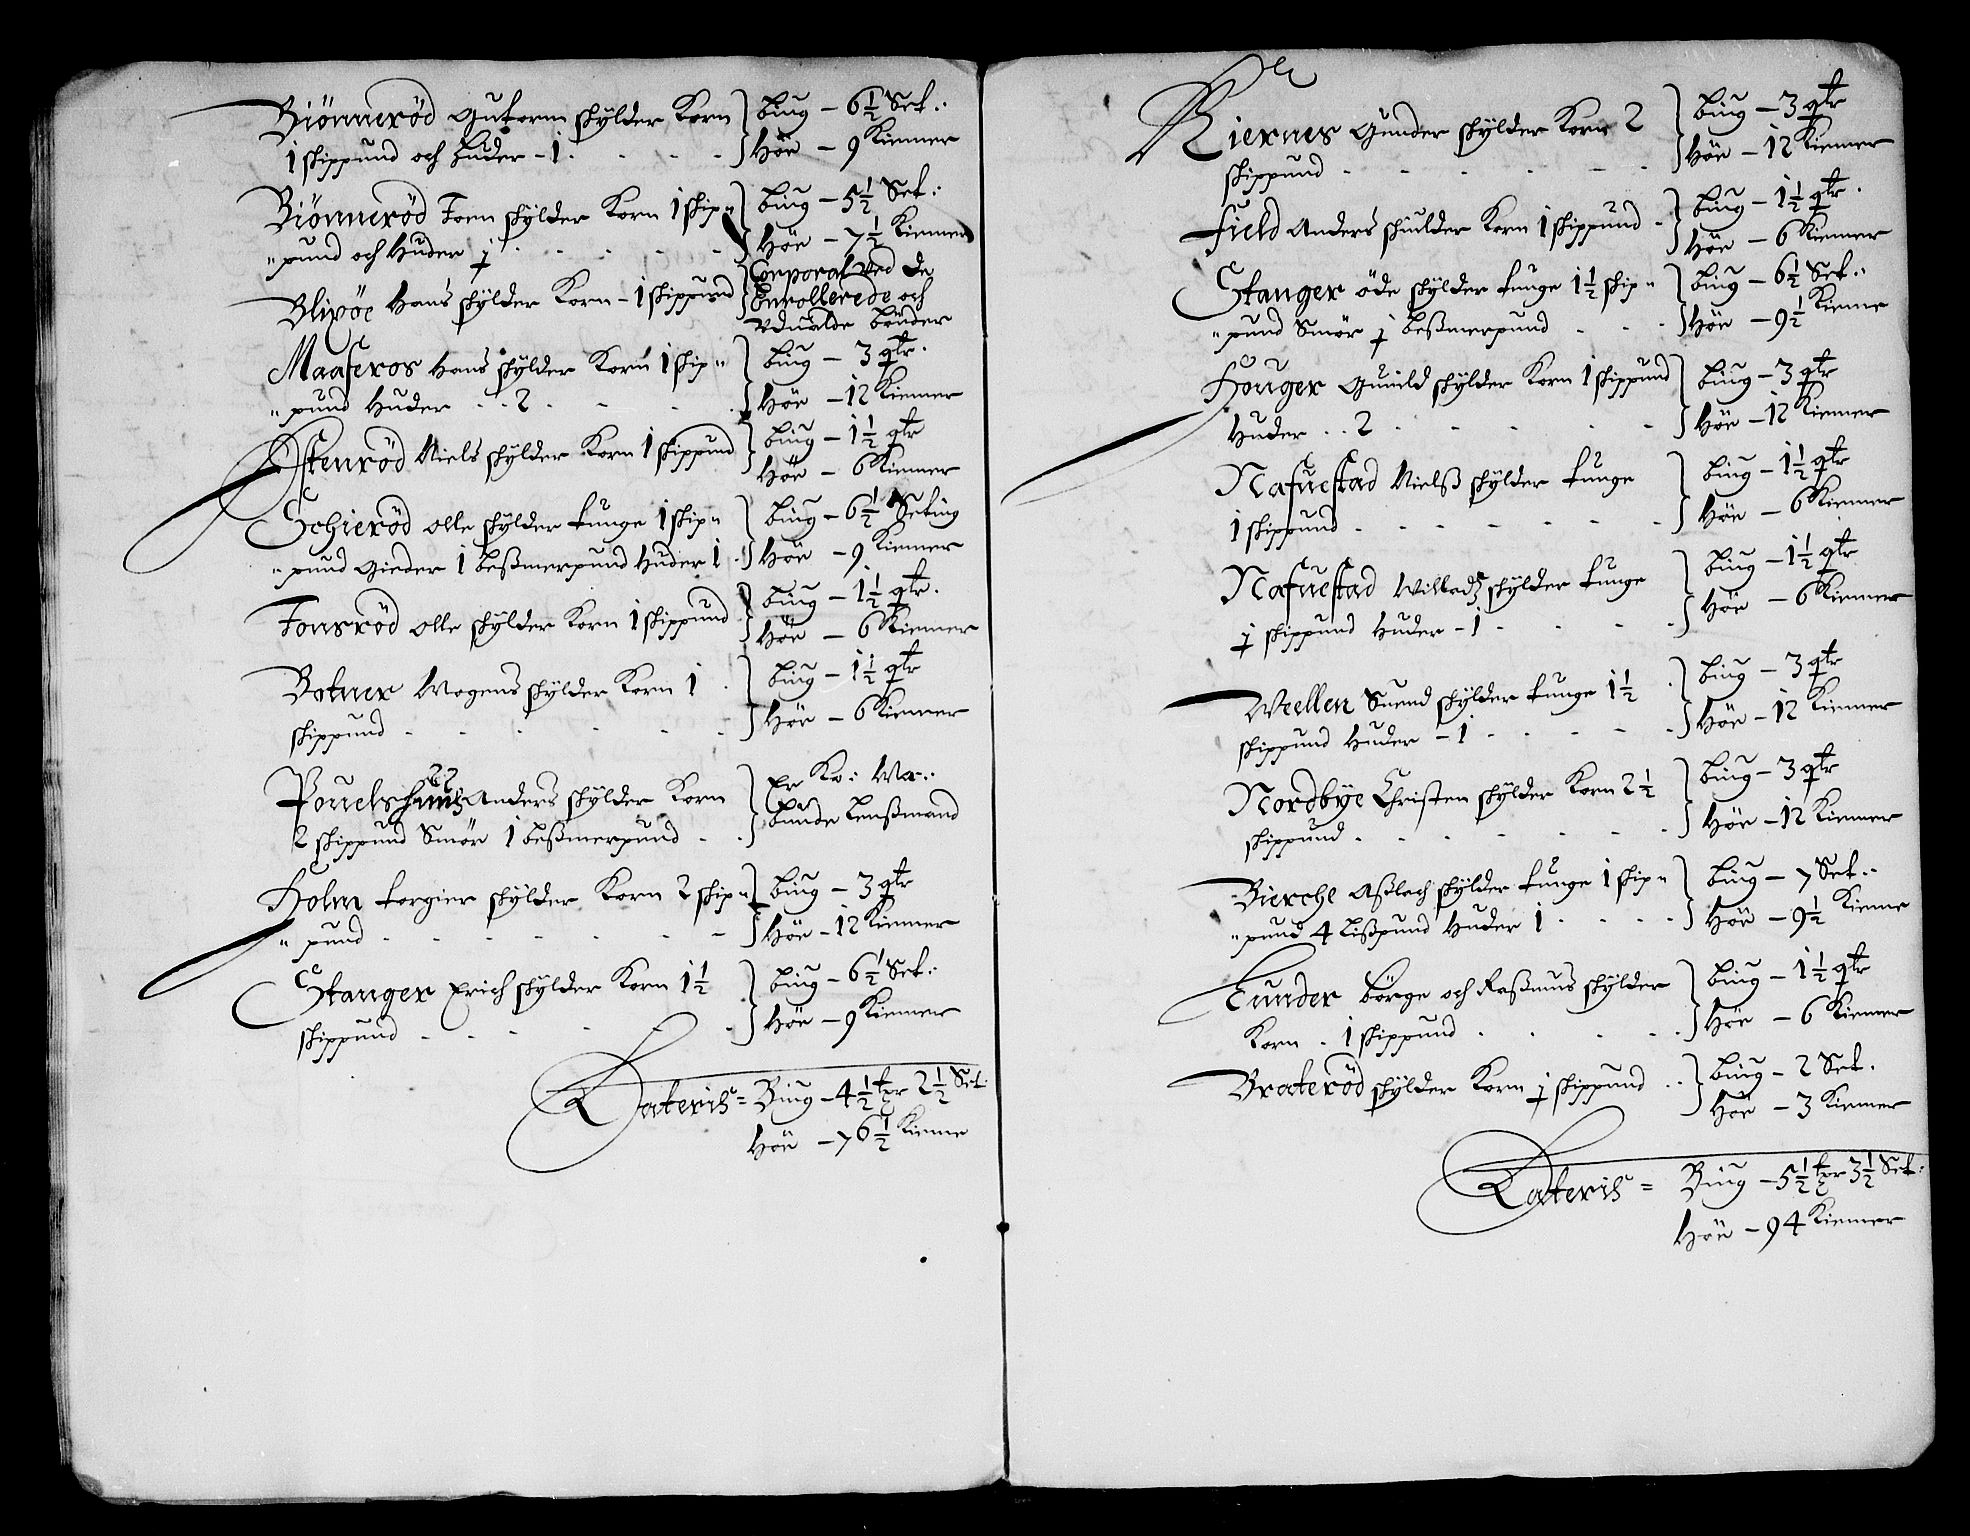 Biönneröd Gutorm skylder Korn
1 skippund och huder - 1
Biug - 6½ Set:
Höe - 9 Kiemer
Biönneröd Joen skylder Korn 1 skip„
„pund och Huder j
Biug - 5½ Set:
Höe - 7½ Kiemer
Blixöe Hans skylder Korn - 1 skippund
Corporal ved de
Enrollerede och
Vdualde bönder
Maaseros Hans skylder Korn 1 skip„
„pund Huder - 2
Biug - 3 qtr.
Höe - 12 Kiemer
Östenröd Niels skylder Korn 1 skippund
Biug - 1½ qtr
Höe - 6 Kiemer
Schieröd Olle skylder tunge 1 skip„
„pund Gieder 1 beßmerpund Huder 1
Biug - 6½ Seting
Höe - 9 Kiemer
Jonsröd Olle skylder Korn 1 skippund
Biug - 1½ qtr.
Höe - 6 Kiemer
Botner Mogens skylder Korn 1
skippund
Biug - 1½ qtr
Höe - 6 Kiemer
Pouels Anders skylder Korn
2 skippund Smör 1 beßmerpund
Er Ko: Ma:
bunde Lensmand
Holm torgier skylder Korn 2 skip„
„pund
Biug - 3 qtr
Höe - 12 Kiemer
Stanger Erich skylder Korn 1½
skippund
Biug - 6½ Set:
Höe - 9 Kiemer
Lateris = Biug - 4½ tr 2½ Set:
Höe - 76½ Kieme
Kiernes Gunder skylder Korn 2
skippund
Biug - 3 qtr
Höe - 12 Kiemer
Field Anders skiulder Korn 1 skippund
Biug - 1½ qtr.
Höe - 6 Kiemer
Stanger öde skylder tunge 1½ skip„
„pund Smör j beßmerpund
Biug - 6½ Set:
Höe - 9½ Kieme
Houger Gunild skylder Korn 1 skippund
Huder - 2
Biug - 3 qtr
Höe - 12 Kiemer
Nafuestad Nielß skylder tunge
1 skippund
Biug - 1½ qtr
Höe - 6 Kiemer
Nafuestad Willads skylder tunge
j skippund Huder - 1
Biug - 1½ qtr
Höe - 6 Kiemer
Wellen Suend skylder tunge 1½
skippund Huder - 1
Biug - 3 qtr
Höe - 12 Kiemer
Nordbye Christen skylder Korn 2½
skippund
Biug - 3 qtr
Höe - 12 Kiemer
Bierche Aßlach skylder tunge 1 skip„
„pund 4 lißpund Huder 1
Biug - 7 Set:
Höe - 9½ Kieme
Lunder börge och Raßmus skylder
Korn - 1 skippund
Biug - 1½ qtr
Höe - 6 Kiemer
Brateröd skylder Korn j skippund
Biug - 2 Set.
Höe - 3 Kiemer
Lateris = Biug - 5½ tr 3½ Set:
Höe - 94 Kiemer